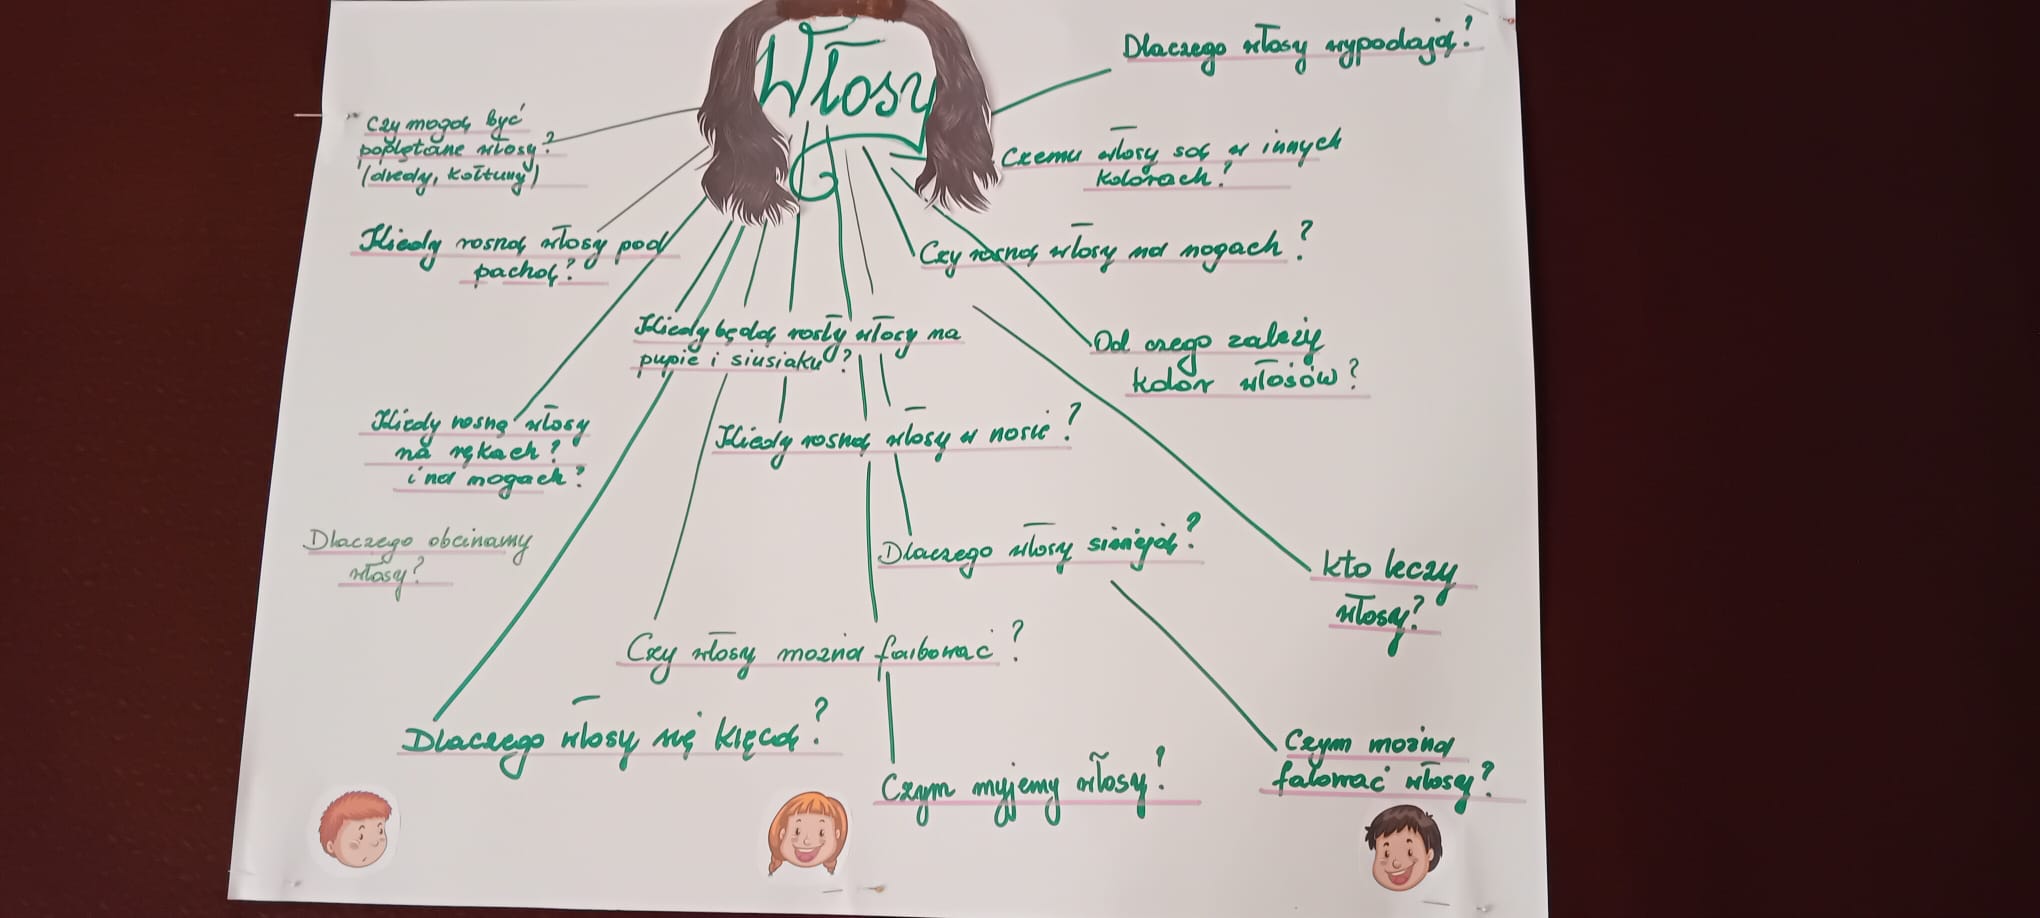 Włosy
Dlaczego włosy wypadają?
Czy mogą być
poplątane włosy?
(dredy, kołtuny)
Czemu włosy są w innych
kolorach?
Kiedy rosną włosy pod
pachą?
Czy rosną włosy na nogach?
Kiedy będą rosły włosy na
pupie i siusiaku?
Od czego zależy
kolor włosów?
Kiedy rosną włosy
na rękach?
i na nogach?
Kiedy rosną włosy w nosie?
Dlaczego obcinamy
włosy?
Dlaczego włosy siwieją?
kto leczy
włosy?
Czy włosy można farbować?
Dlaczego włosy się kręcą?
Czym myjemy włosy?
Czym można
falować włosy?